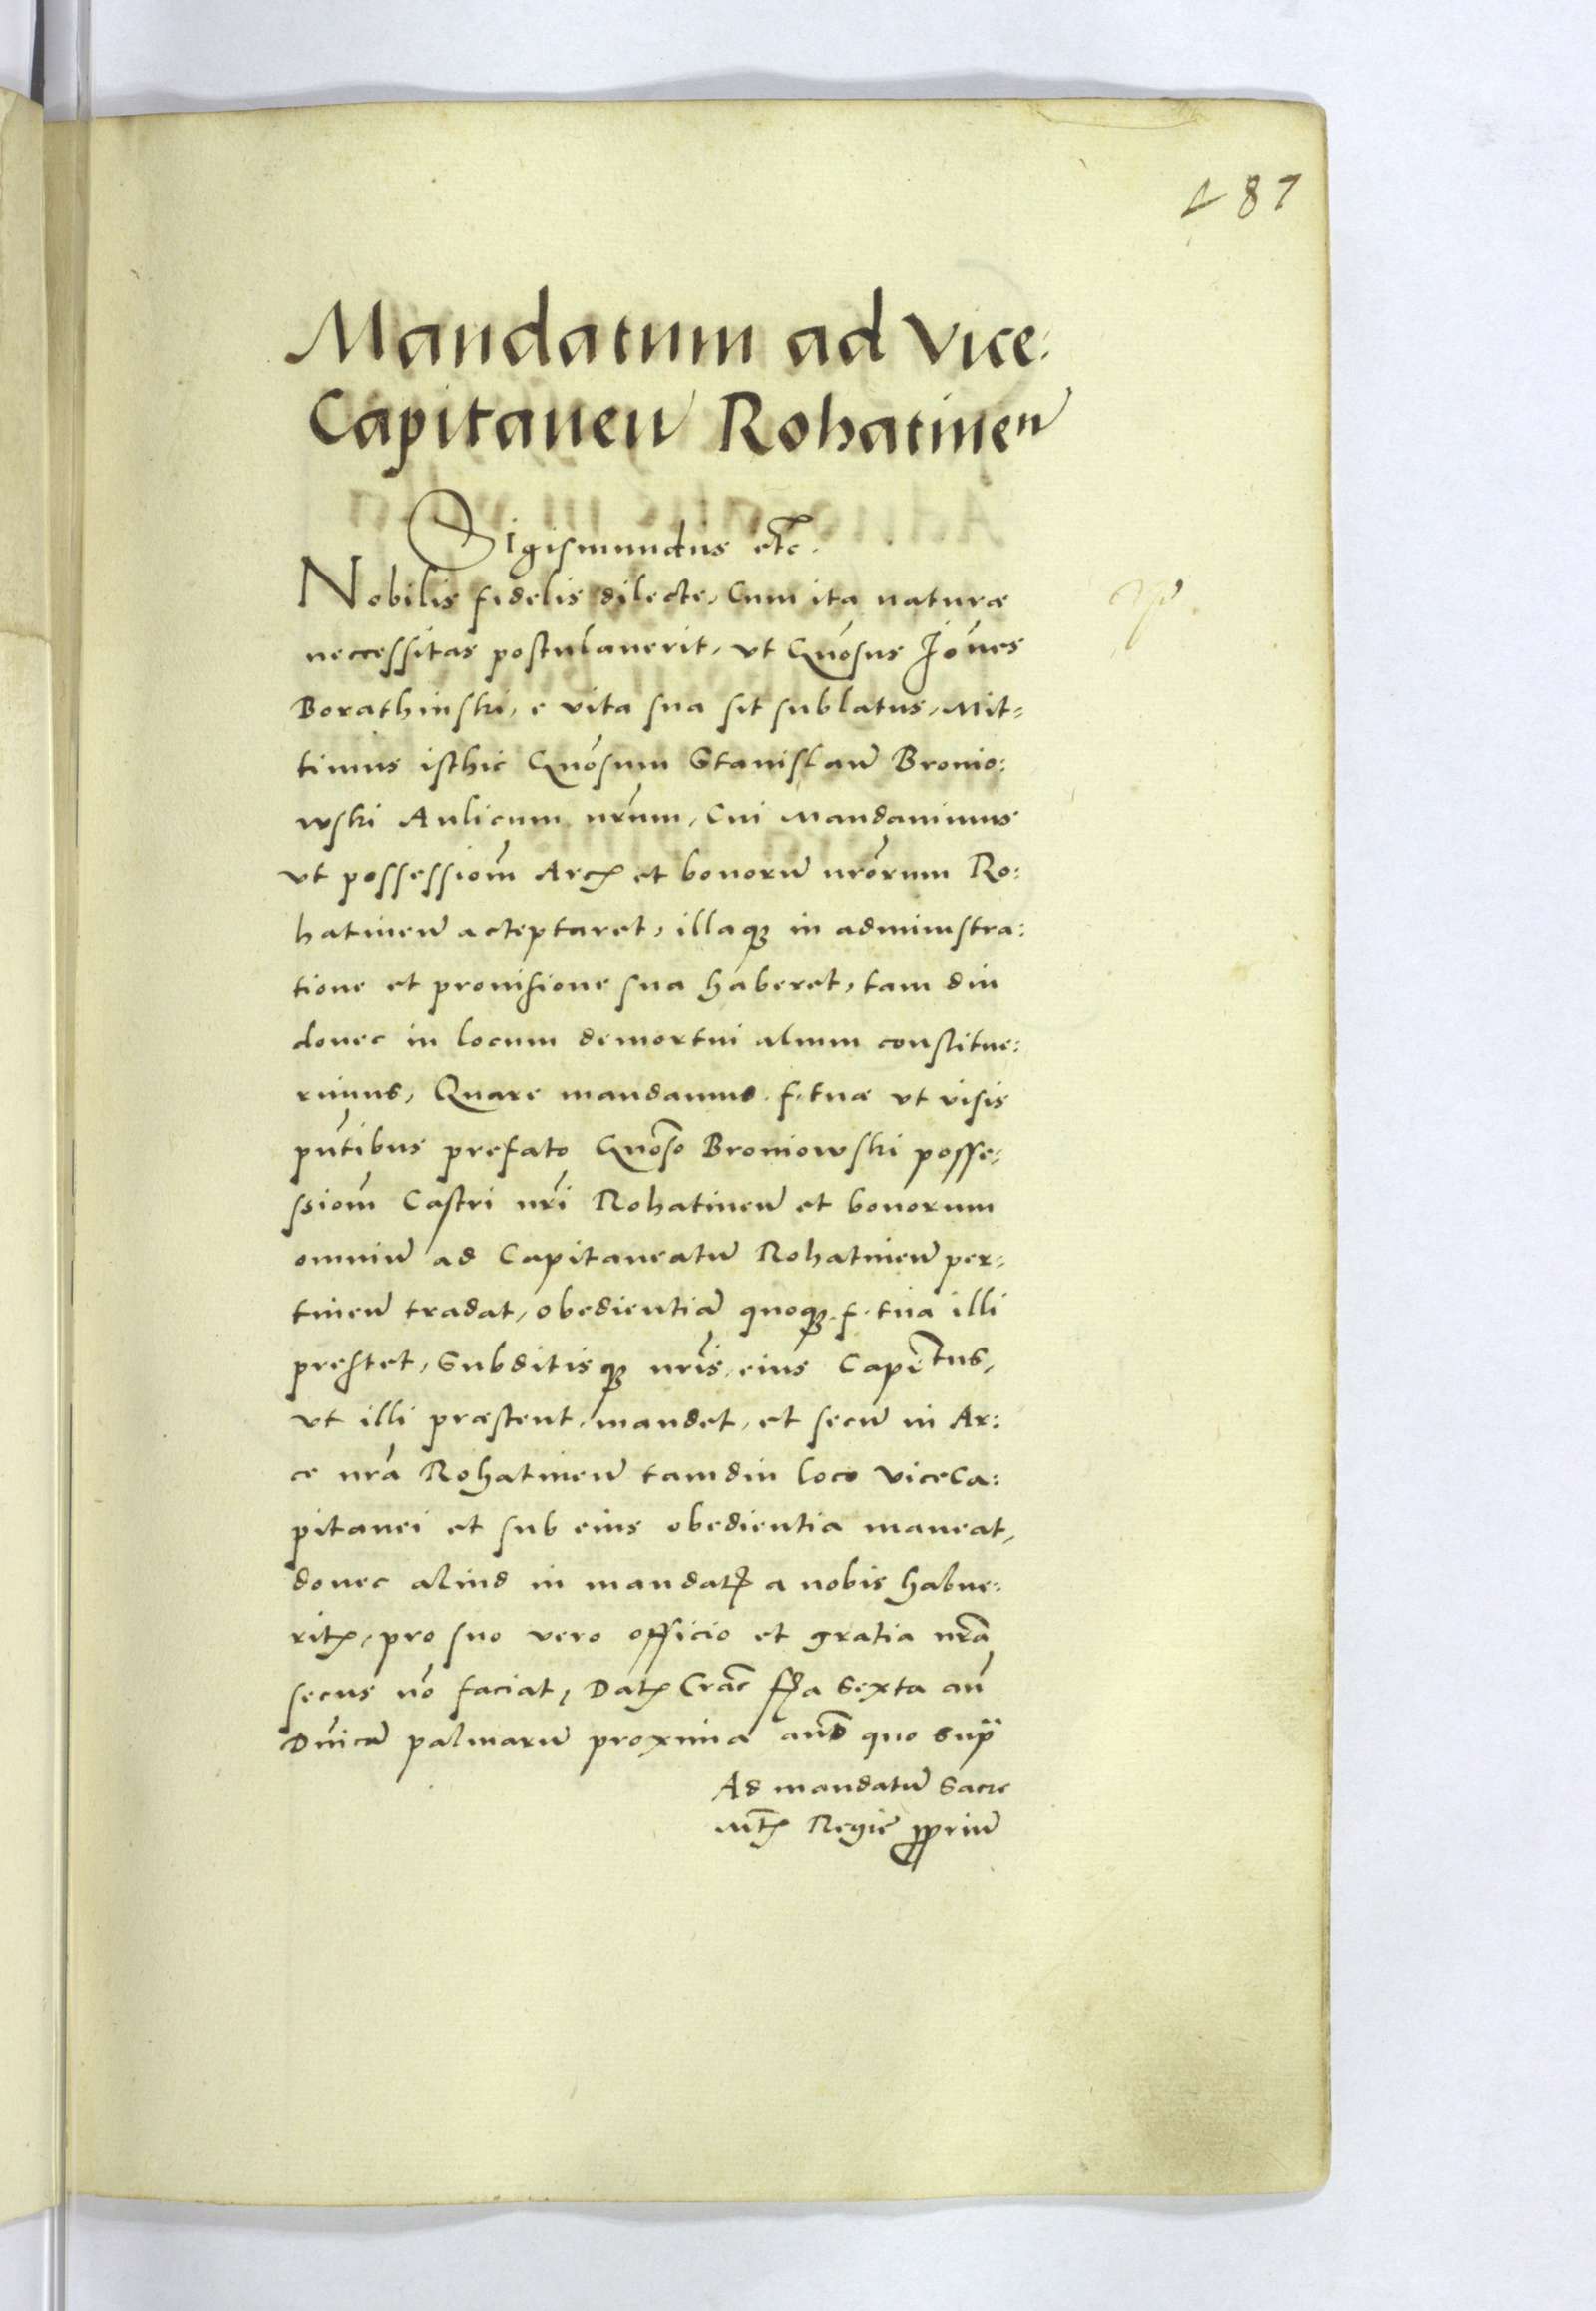 187
Mandatum ad Vice:
Capitaneū Rohatineñ
Sigismundus etc.
Nobilis fidelis dilecte, Cum ita naturæ
neccessitas postulauerit, vt Gñosus Joñes
Borathinski, e vita sua sit sublatus, Mit=
timus isthic Gñosum Stanislaū Bronio:
wski Aulicum nr̃um, Cui Mandauimus
vt possessiom̃ Arcꝭ et bonorū nr̃orum Ro:
hatineñ acceptaret, illaqꝫ in administra:
tione et prouisione sua haberet, tam diu
donec in locum demortui alium constitue:
rimus, Quare mandamus f. tuæ vt visis
pñtibus prefato Gñoso Broniowski posse=
ssiom̃ Castri nr̃i Rohatineñ et bonorum
omniū ad Capitaneatū Rohatineñ per=
tineñ tradat, obedientiā quoqꝫ f. tua illi
prestet, Subditisqꝫ nr̃is eius Capitus,
vt illi præstent, mandet, et secū in Ar:
ce nr̃a Rohatineñ tamdiu loco ViceCa:
pitanei et sub eius obedientia maneat,
donec aliud in mandatꝭ a nobis habue:
ritꝭ, pro suo vero officio et gratia nr̃a
secus nō faciat, Datꝭ Crac̃ f̃ia Sexta añ
Dñicā palmarū proxima anō quo supͣ
Ad mandatū Sacre
Mt̃ꝭ Regiē ꝓpriū